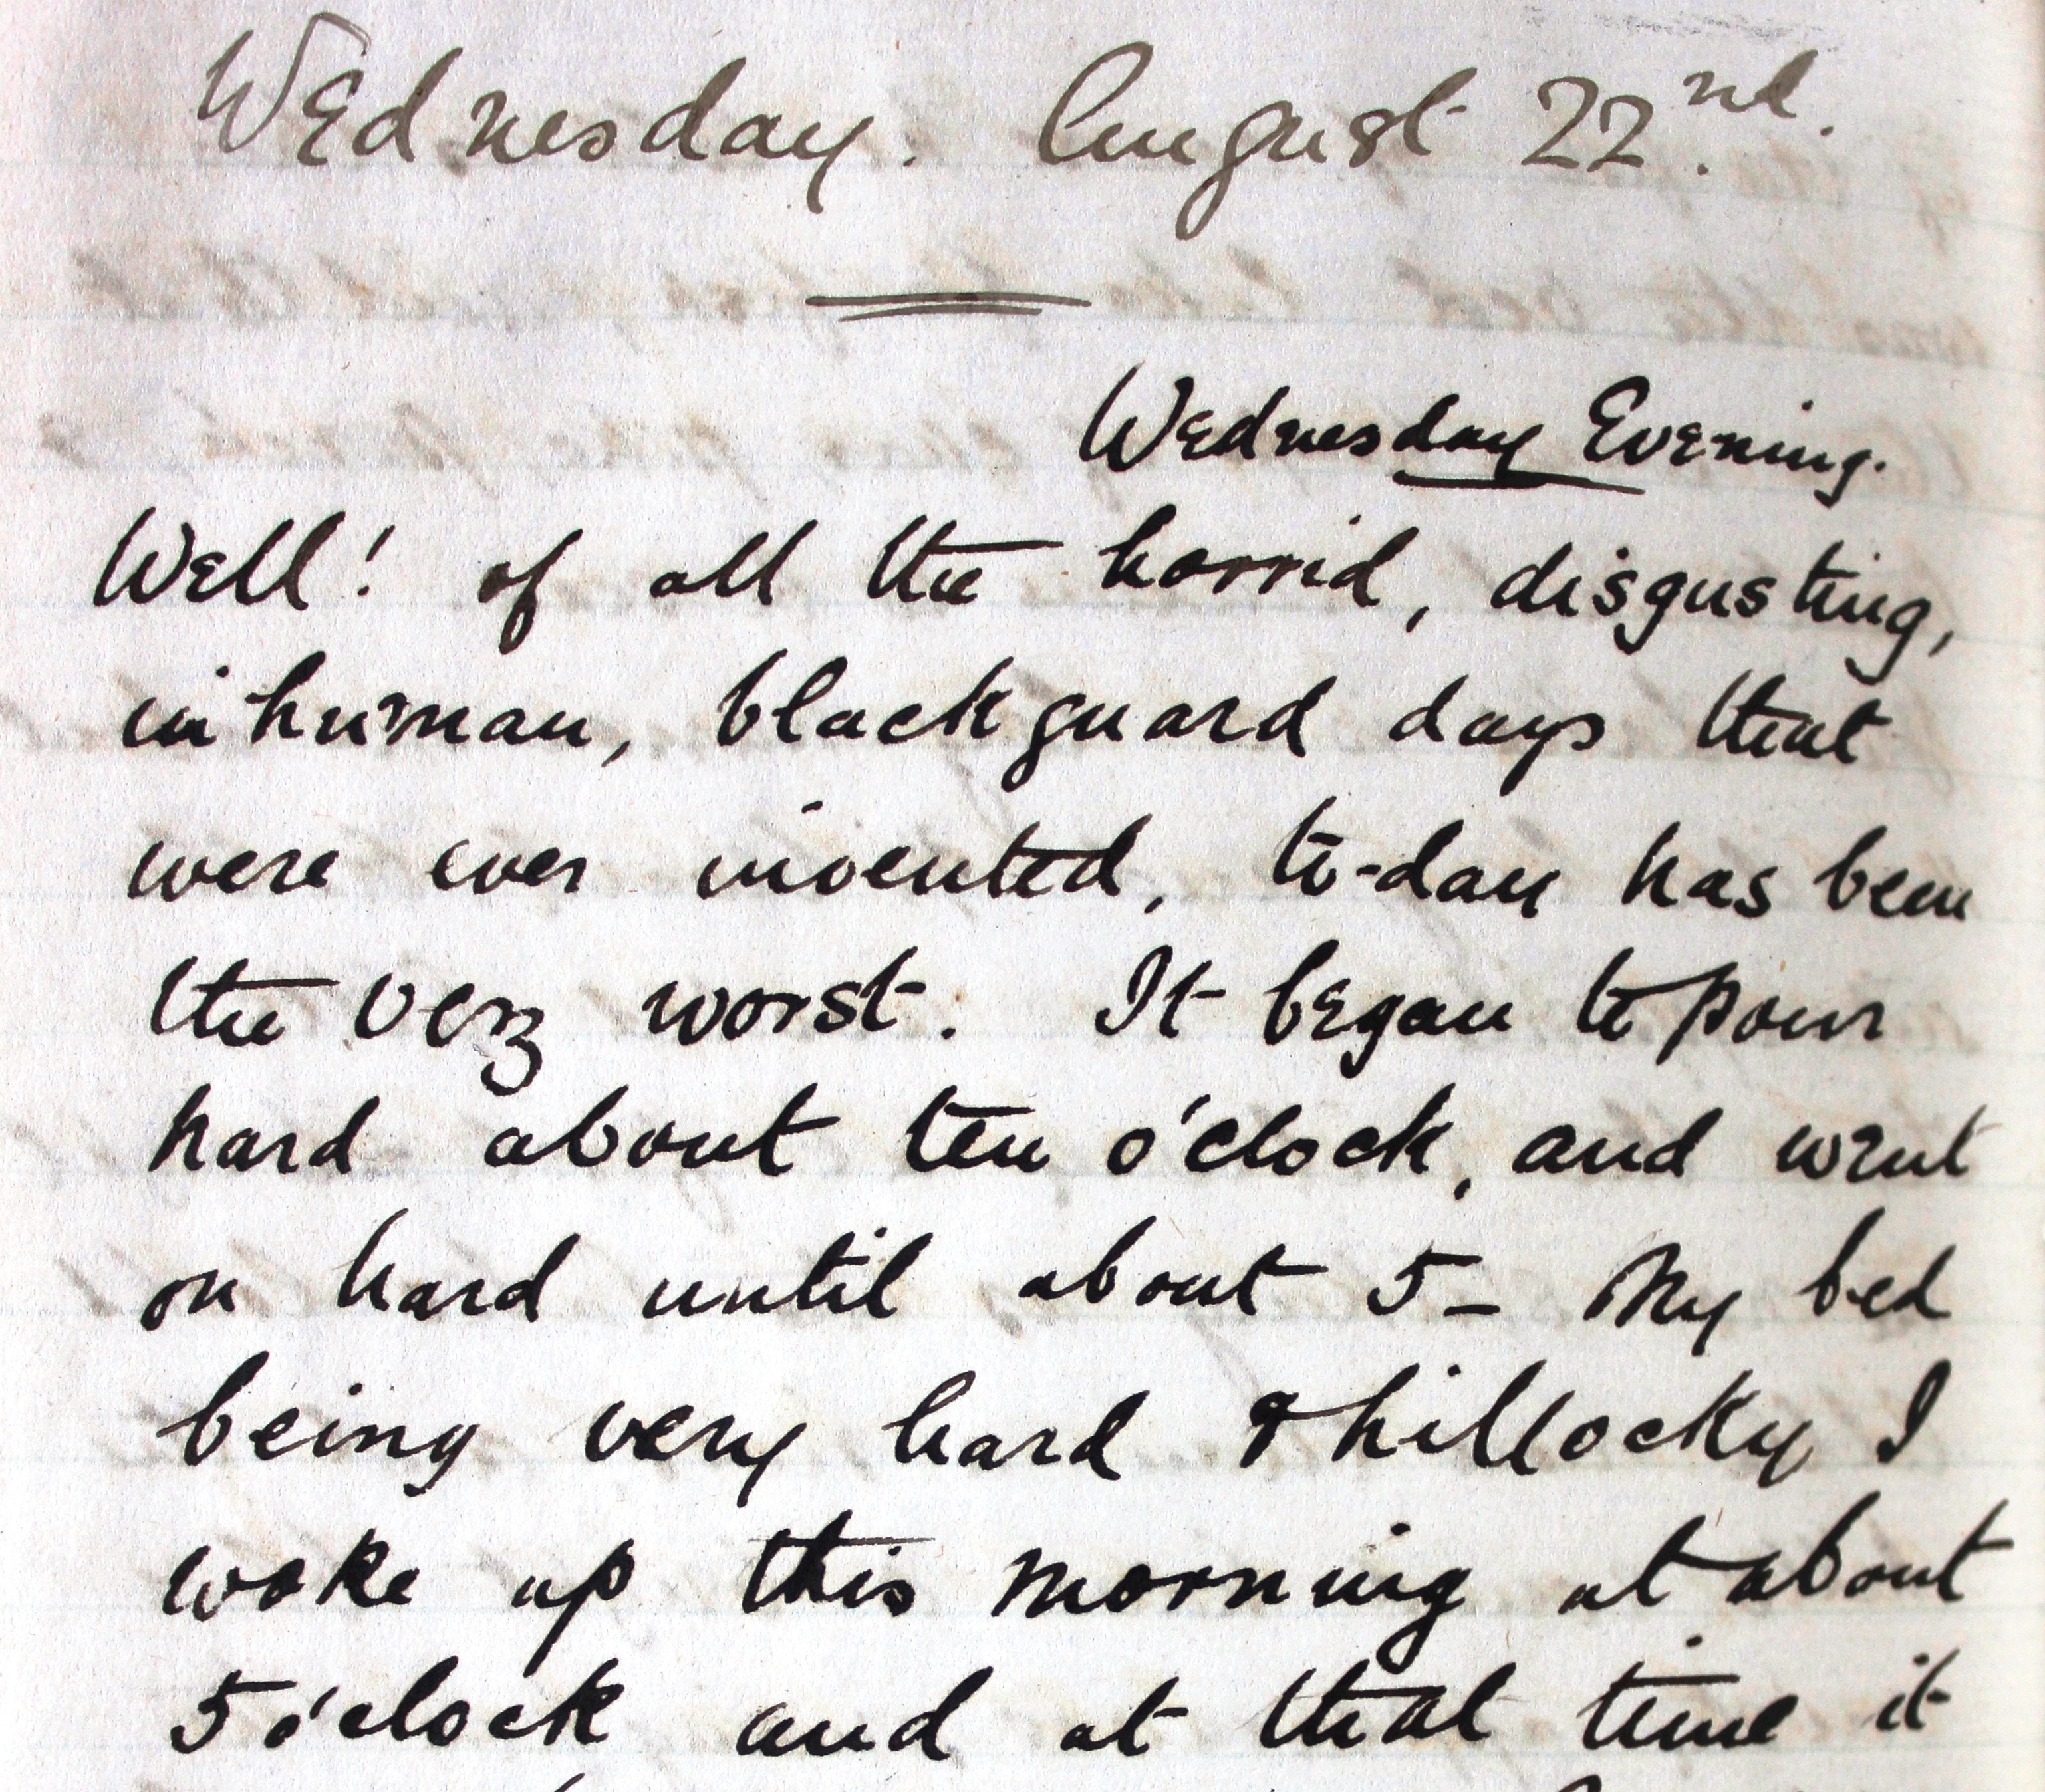 Wednesday. August 22nd.
Wednesday Evening.
Well! of all the horrid, disgusting,
inhuman, blackguard days that
were ever invented, to-day has been
the very worst. It began to pour
hard about ten o'clock, and went
on hard until about 5 – My bed
being very hard & hillocky I
woke up this morning at about
5 o'clock and at that time it